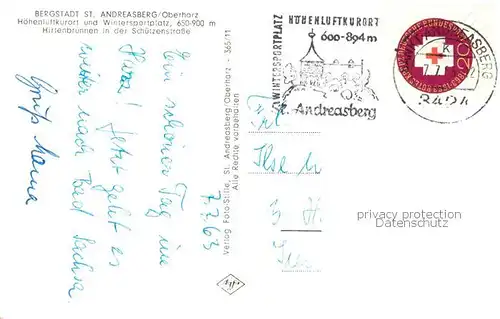 BERGSTADT ST. ANDREASBERG/Oberharz
Höhenluftkurort und Wintersportplatz, 650-900 m
Hirtenbrunnen in der Schützenstraße
7.7.63
Ein schöner Tag im
Harz! Jetzt geht es
weiter nach Bad Sachsa
Gruß Hanna
Verlag Foto-Stille, St. Andreasberg/Oberharz - 365/11
Alle Rechte vorbehalten
WINTERSPORTPLATZ
HÖHENLUFTKURORT
600-894m
St. Andreasberg
20
ANDREASBERG
3424
Frl
Ilse
privacy protection
Datenschutz